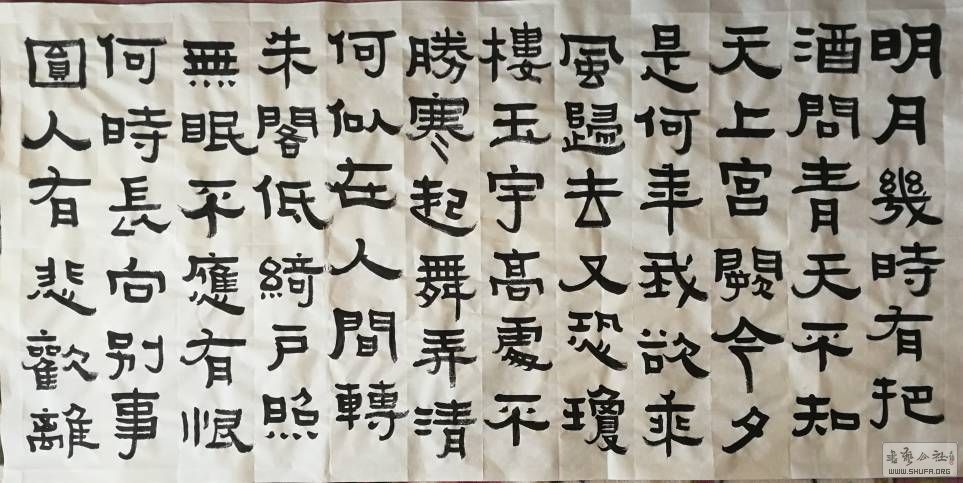 明月幾時有把
酒問青天不知
天上宮闕今夕
是何年我欲乘
風歸去又恐瓊
樓玉宇高處不
勝寒起舞弄清
何似在人間轉
朱閣低綺戶照
無眠不應有恨
何時長向別事
圓人有悲歡離
WWW.SHUFA.ORG